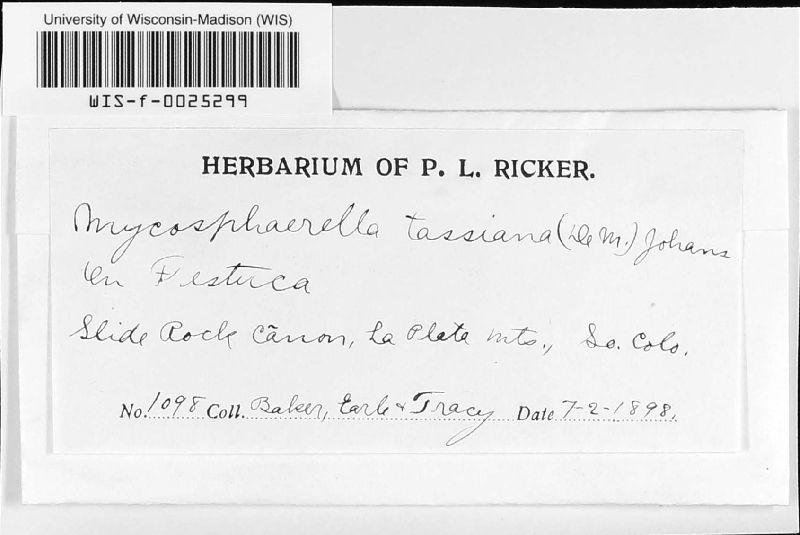 University of Wisconsin-Madison (WIS)
WIS-f-0025299
HERBARIUM OF P. L. RICKER.
Mycosphaerella tassiana (De M.) Johans
On Festuca
Slide Rock Cañon, La Plata Mts., So. Colo.
No. 1098 Coll. Baker, Earle & Tracy Date 7-2-1898.